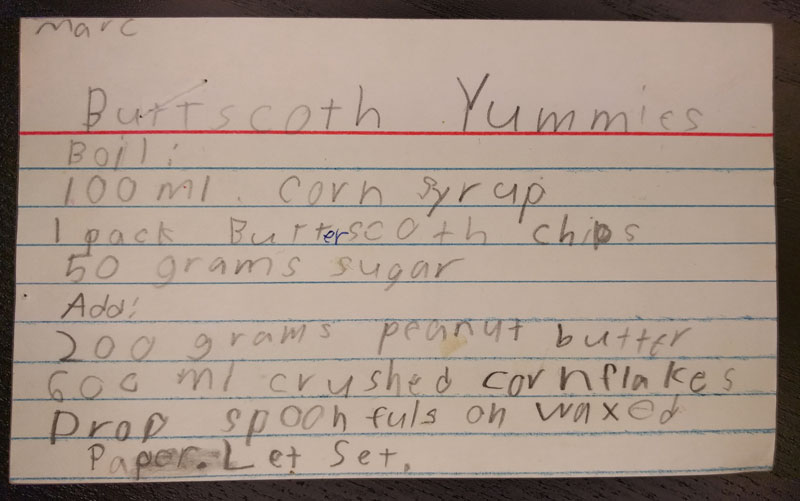 Marc
Buttscoth Yummies
Boil:
100 ml. corn syrup
1 pack Butterscoth chips
50 grams sugar
Add:
200 grams peanut butter
600 ml crushed cornflakes
Drop spoonfuls on waxed
Paper. Let Set.